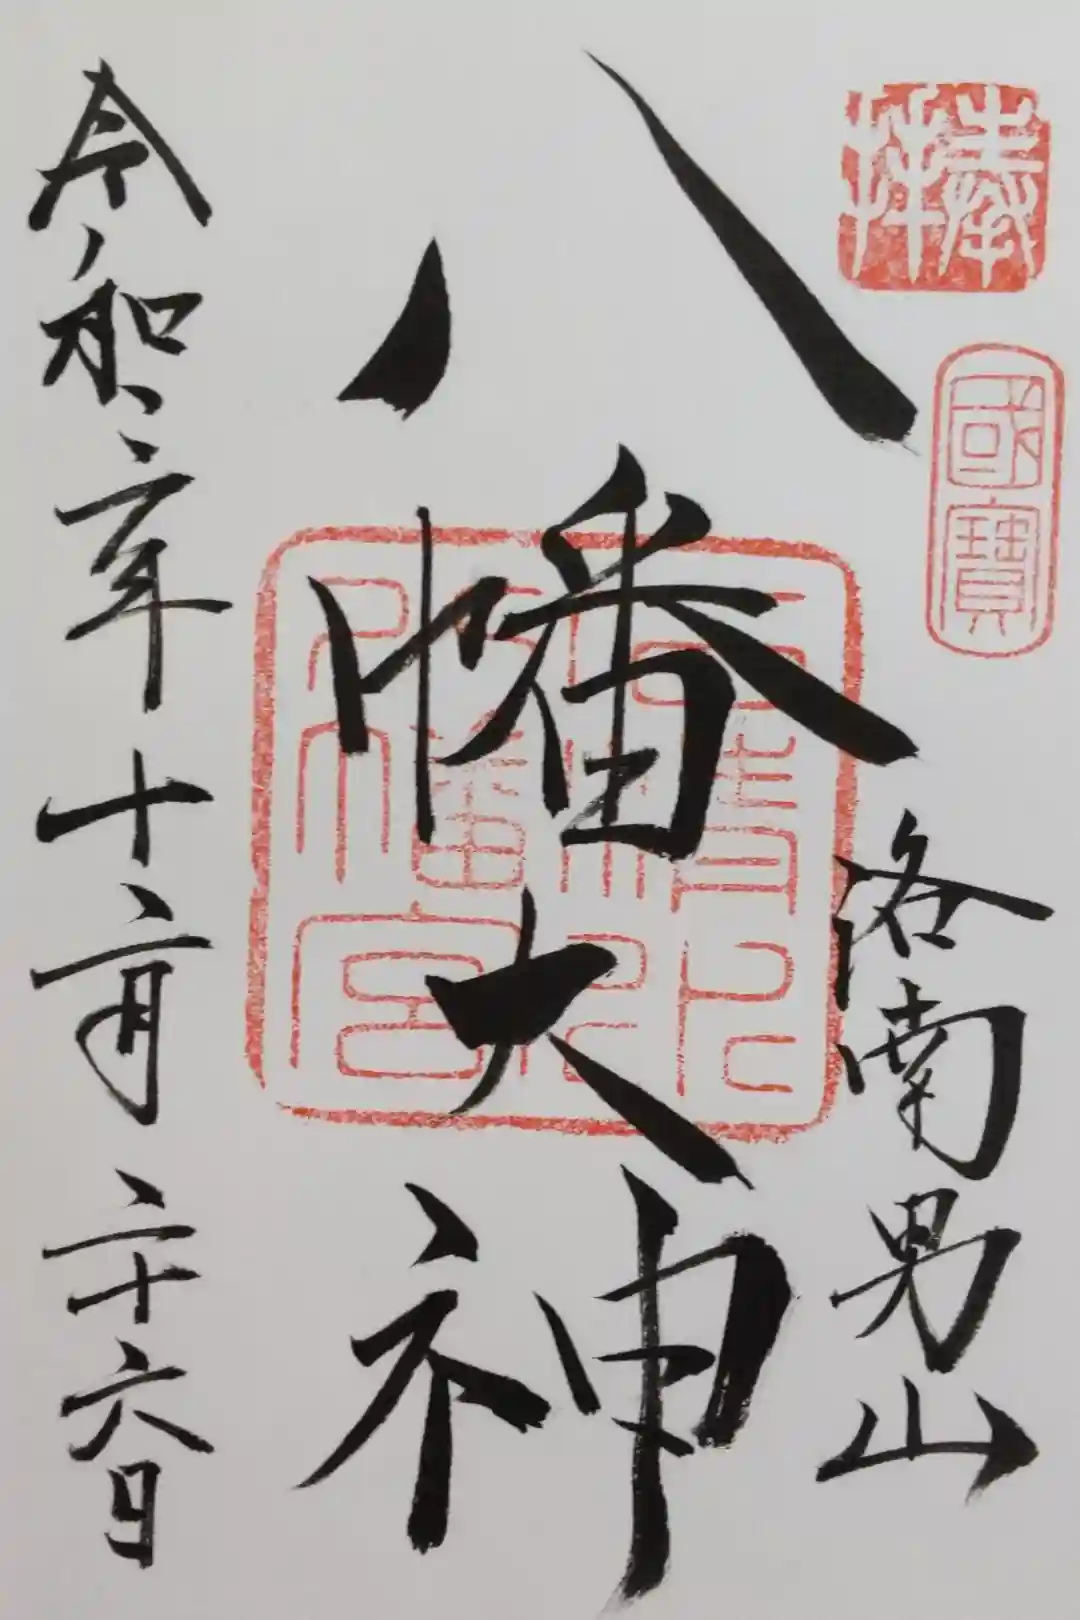 奉拝
國寳
洛南男山
八幡大神
石清水
八幡宮
令和二年十二月二十六日